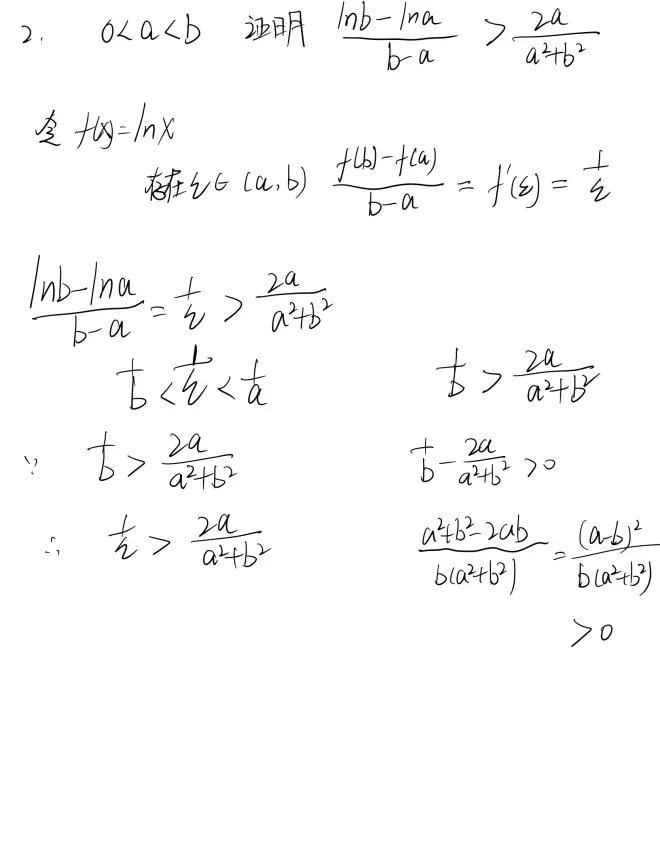 2. 0<a<b 证明 \frac{lnb-lna}{b-a} > \frac{2a}{a²+b²}
令 f(x)=lnx
存在ξ∈(a,b) \frac{f(b)-f(a)}{b-a} = f'(ξ) = \frac{1}{ξ}
\frac{lnb-lna}{b-a} = \frac{1}{ξ} > \frac{2a}{a²+b²}
\frac{1}{b} < \frac{1}{ξ} < \frac{1}{a}
∵ \frac{1}{b} > \frac{2a}{a²+b²}
∴ \frac{1}{ξ} > \frac{2a}{a²+b²}
\frac{1}{b} > \frac{2a}{a²+b²}
\frac{1}{b} - \frac{2a}{a²+b²} >0
\frac{a²+b²-2ab}{b(a²+b²)} = \frac{(a-b)²}{b(a²+b²)}
>0